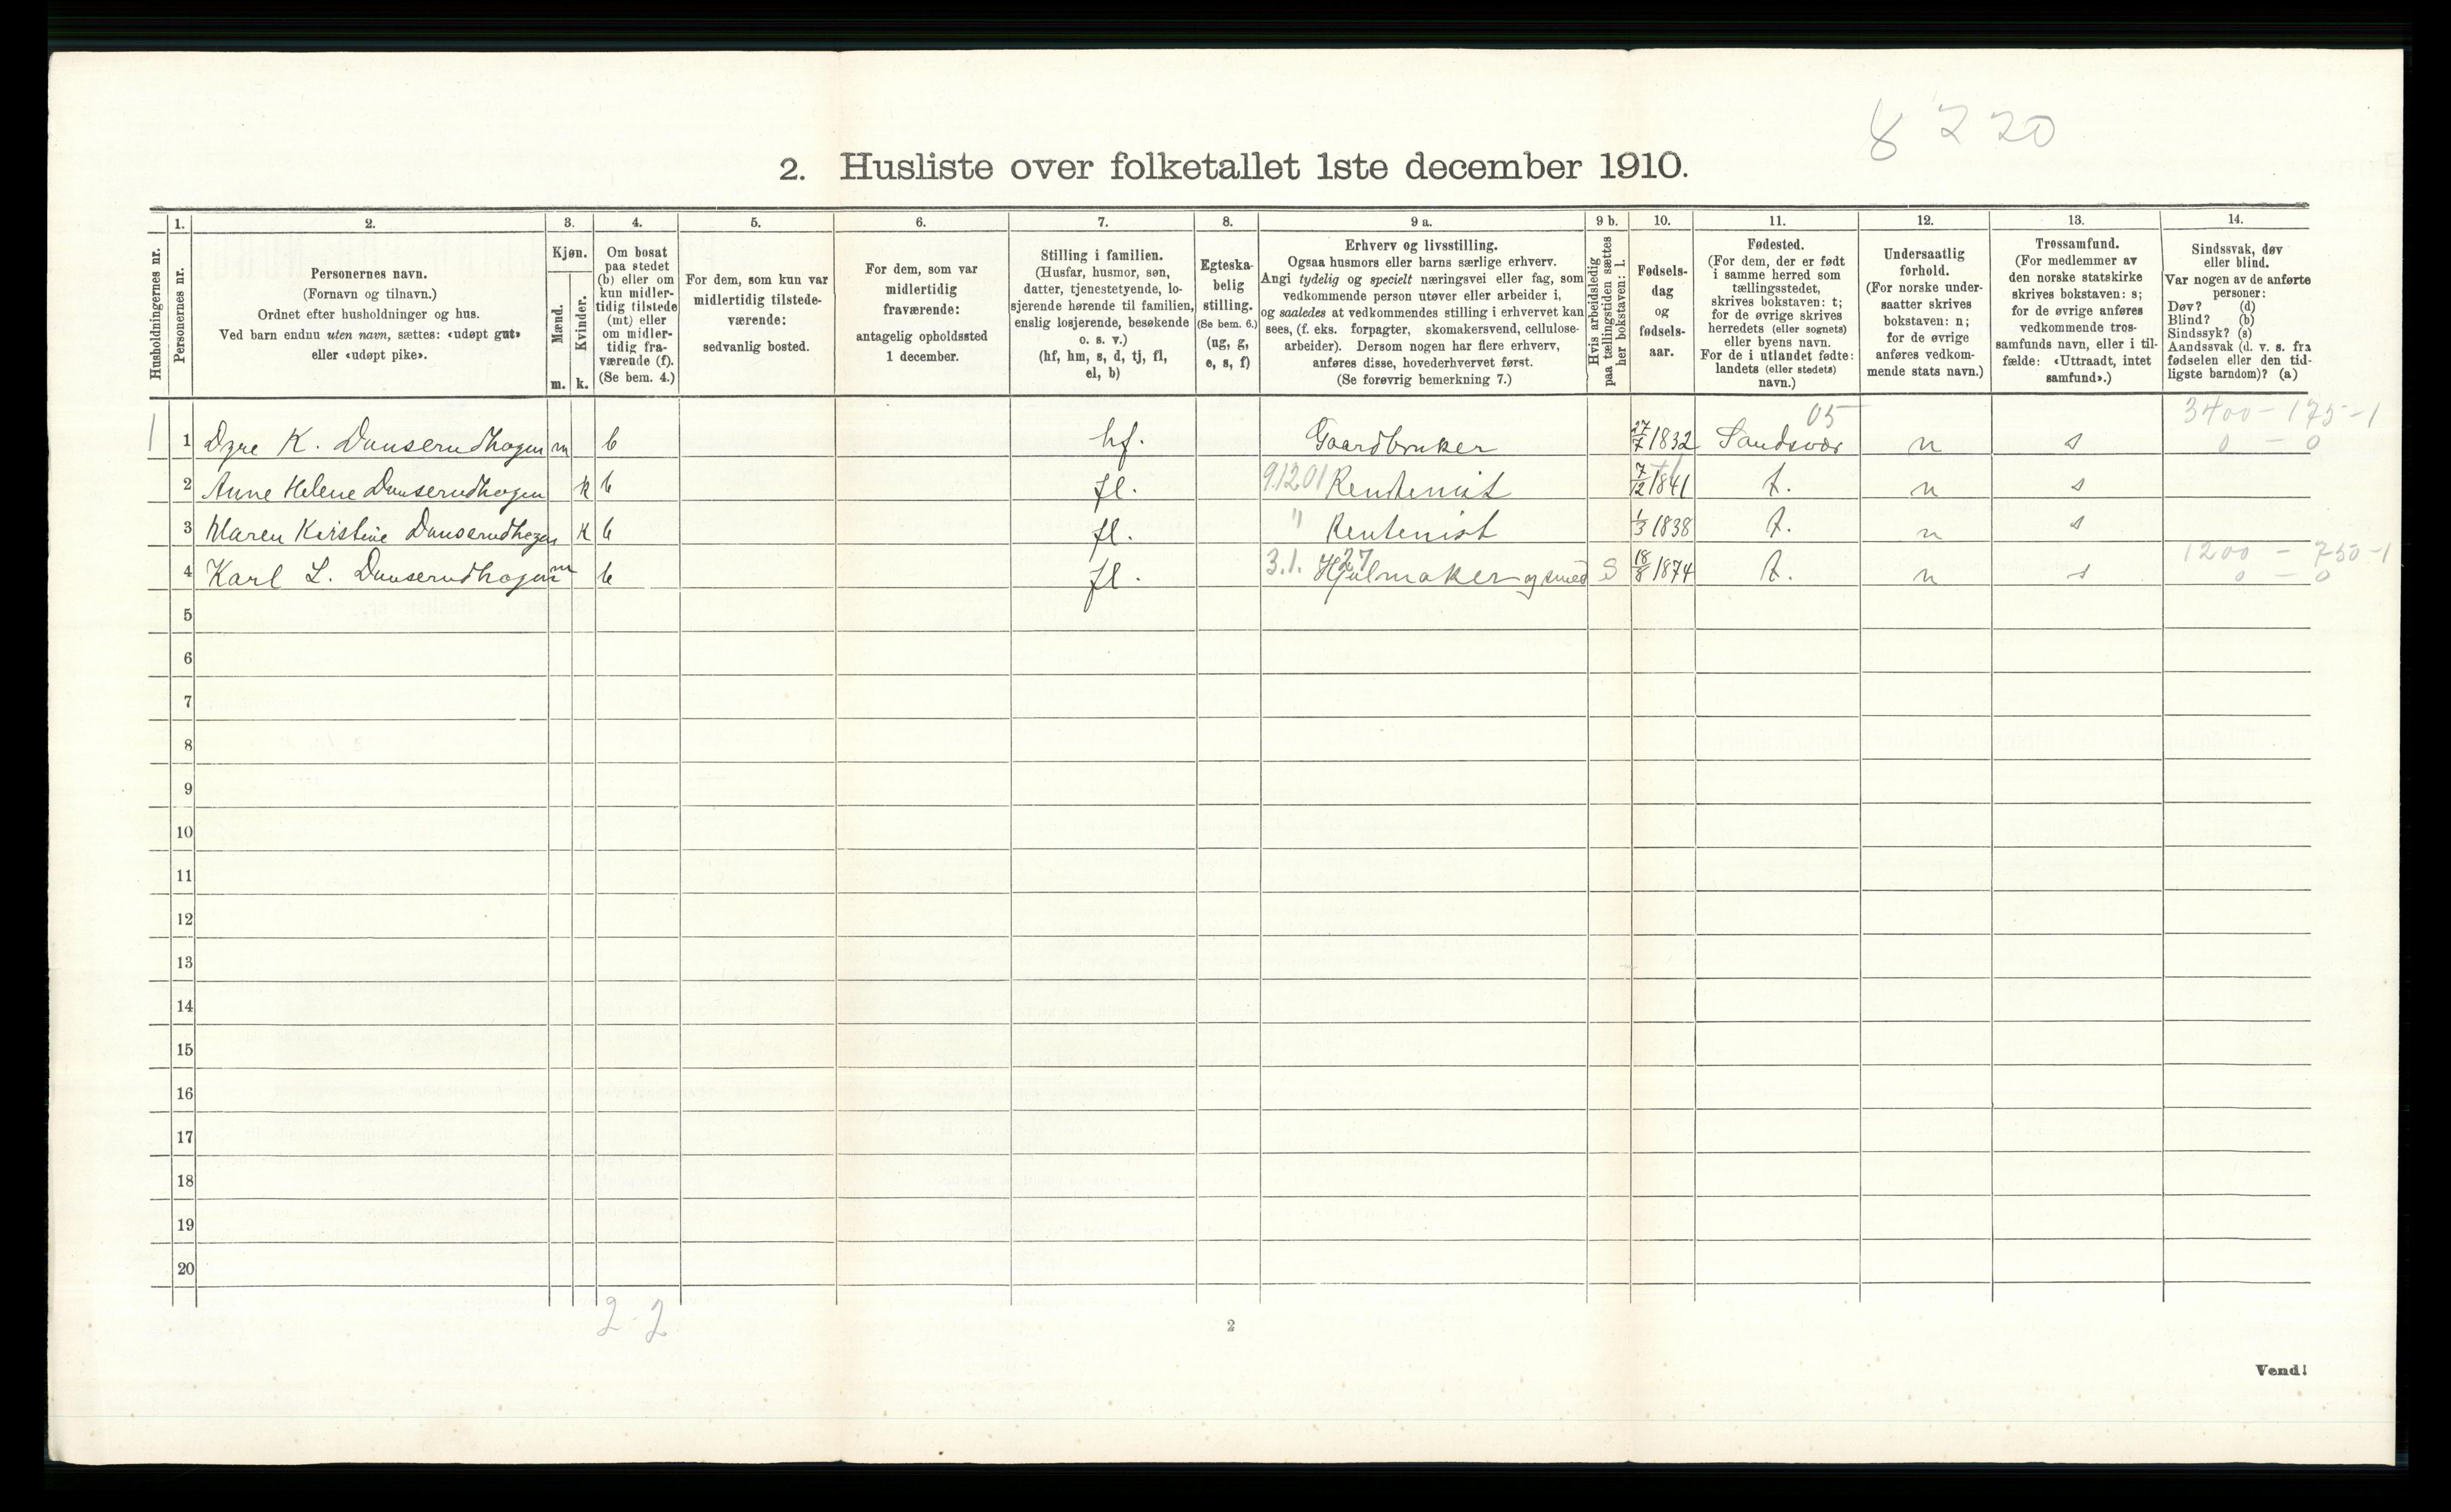 8 2 20
2. Husliste over folketallet 1ste december 1910.
Husholdningernes nr.
1.
Personernes nr.
2.
Personernes navn.
(Fornavn og tilnavn.)
Ordnet efter husholdninger og hus.
Ved barn endnu uten navn, sættes: «udøpt gut»
eller «udøpt pike».
3.
Kjøn.
Mænd.
Kvinder.
m.
k.
4.
Om bosat
paa stedet
(b) eller om
kun midler-
tidig tilstede
(mt) eller
om midler-
tidig fra-
værende (f).
(Se bem. 4.)
5.
For dem, som kun var
midlertidig tilstede-
værende:
sedvanlig bosted.
6.
For dem, som var
midlertidig
fraværende:
antagelig opholdssted
1 december.
7.
Stilling i familien.
(Husfar, husmor, søn,
datter, tjenestetyende, lo-
sjerende hørende til familien,
enslig losjerende, besøkende
o. s. v.)
(hf, hm, s, d, tj, fl,
el, b)
8.
Egteska-
belig
stilling.
(Se bem. 6.)
(ug, g,
e, s, f)
9 a.
Erhverv og livsstilling.
Ogsaa husmors eller barns særlige erhverv.
Angi tydelig og specielt næringsvei eller fag, som
vedkommende person utøver eller arbeider i,
og saaledes at vedkommendes stilling i erhvervet kan
sees, (f. eks. forpagter, skomakersvend, cellulose-
arbeider). Dersom nogen har flere erhverv,
anføres disse, hovederhvervet først.
(Se forøvrig bemerkning 7.)
9 b.
Hvis arbeidsledig
paa tællingstiden sættes
her bokstaven: l.
10.
Fødsels-
dag
og
fødsels-
aar.
11.
Fødested.
(For dem, der er født
i samme herred som
tællingsstedet,
skrives bokstaven: t;
for de øvrige skrives
herredets (eller sognets)
eller byens navn.
For de i utlandet fødte:
landets (eller stedets)
navn.)
12.
Undersaatlig
forhold.
(For norske under-
saatter skrives
bokstaven: n;
for de øvrige
anføres vedkom-
mende stats navn.)
13.
Trossamfund.
(For medlemmer av
den norske statskirke
skrives bokstaven: s;
for de øvrige anføres
vedkommende tros-
samfunds navn, eller i til-
fælde: «Uttraadt, intet
samfund».)
14.
Sindssvak, døv
eller blind.
Var nogen av de anførte
personer:
Døv? (d)
Blind? (b)
Sindssyk? (s)
Aandssvak (d. v. s. fra
fødselen eller den tid-
ligste barndom)? (a)
05 3400 - 175 - 1
1 1 Dyre K. Dunserudhagen m b hf. Gaardbruker 27/7 1832 Sandsvær n s 0 - 0
2 Anne Helene Dunserudhagen k b fl. 91201 Rentenist 7/12 1841 t. n s
3 Maren Kirstine Dunserudhagen k b fl. " Rentenist 1/3 1838 t. n s
27 1200 - 750 - 1
4 Karl L. Dunserudhagen m b fl. 3.1. Hjulmaker og smed S 18/8 1874 t. n s 0 - 0
5
6
7
8
9
10
11
12
13
14
15
16
17
18
19
20
2 - 2
2
Vend!